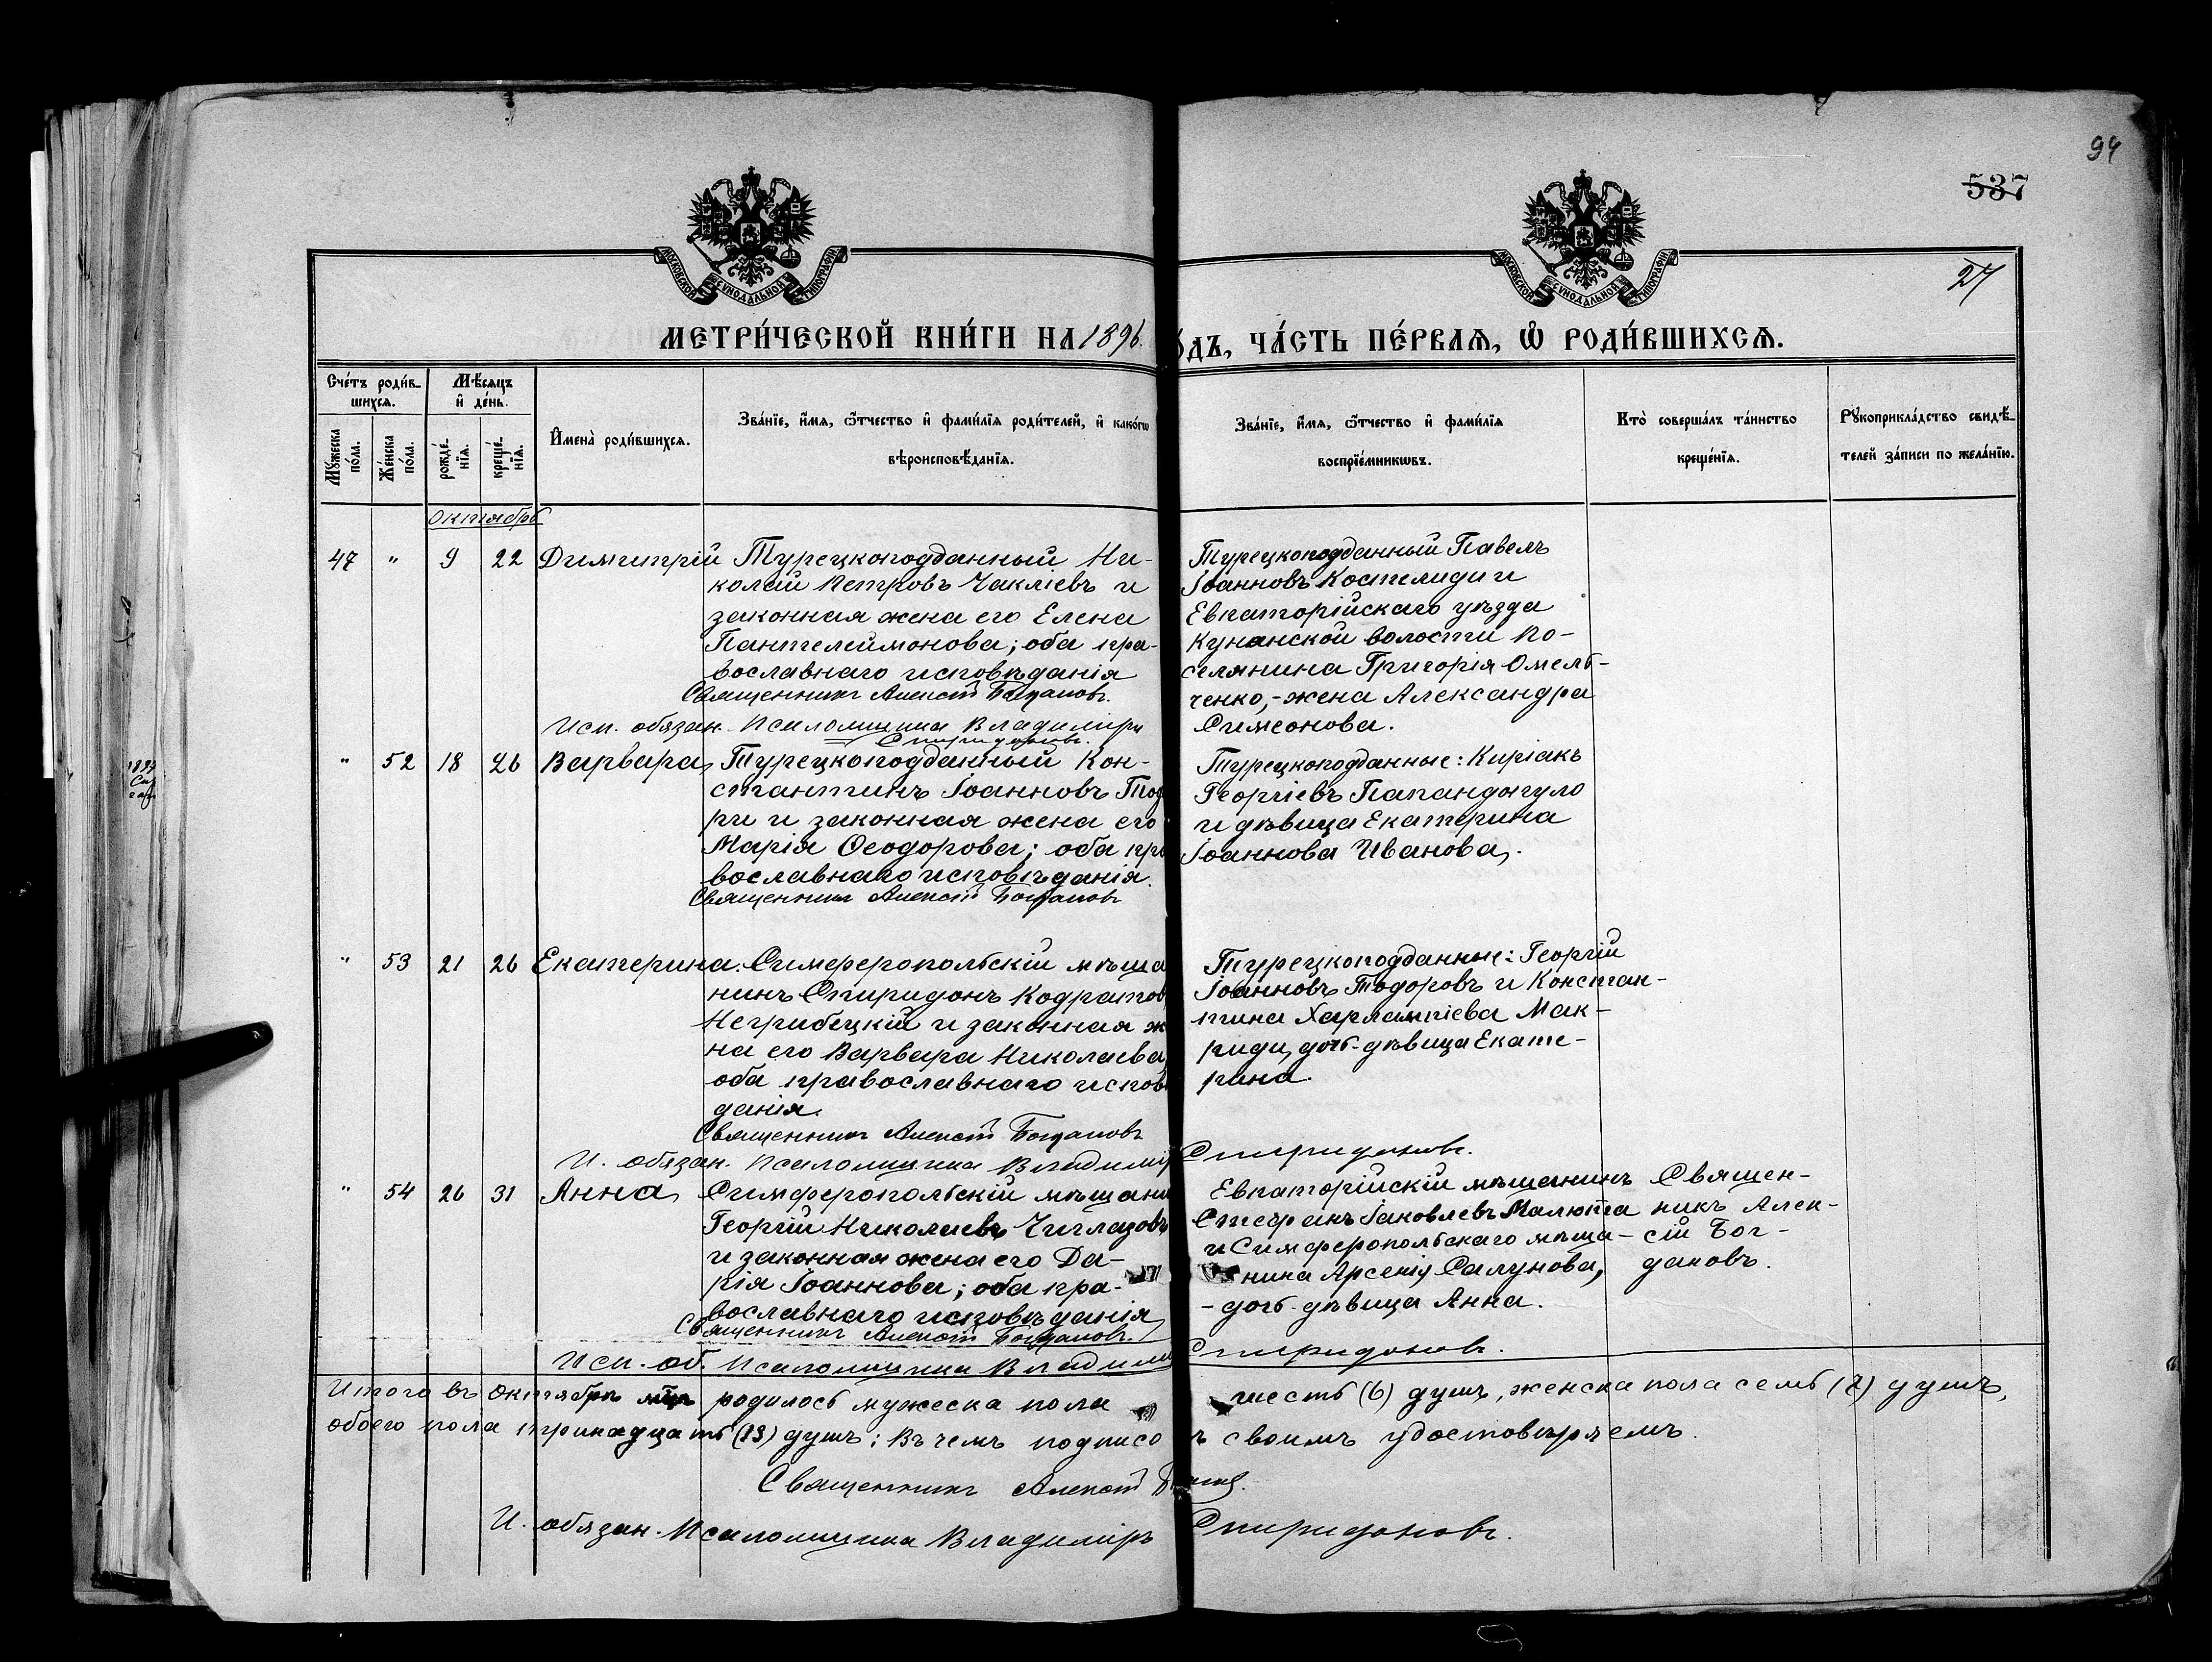 94
537
27
МОСКОВСКОЙ СѴНОДАЛЬНОЙ ТИПОГРАФІИ
МОСКОВСКОЙ СѴНОДАЛЬНОЙ ТИПОГРАФІИ
МЕТРИ́ЧЕСКОЙ КНИ́ГИ НА 1896.
О́ДЪ, ЧА́СТЬ ПЕ́РВАЯ, Ѡ РОДИ́ВШИХСЯ.
Сче́тъ роди́в-
шихся.
Мѣ́сяцъ
и҆ де́нь.
Мꙋ́жеска
по́ла.
Же́нска
по́ла.
рожде́-
нїя.
креще́-
нїя.
И҆мена̀ роди́вшихся.
Зва́нїе, и҆́мя, ѻ҆́тчество и҆ фами́лїя роди́телей, и҆ како́гѡ
вѣроисповѣ́данїя.
Зва́нїе, и҆́мя, ѻ҆́тчество и҆ фами́лїя
воспрїе́мникѡвъ.
Кто̀ соверша́лъ та́инство
креще́нїя.
Рꙋкоприкла́дство свидѣ́-
телей за́писи по жела́нїю.
Октябрь
47 " 9 22 Димитрій Турецкоподданный Ни-
колай Петровъ Чакліевъ и
законная жена его Елена
Пантелеймонова; оба пра-
вославнаго исповѣданія
Священникъ Алексій Богдановъ.
Исп. обязан. Псаломщика Владиміръ
Спиридоновъ.
Турецкоподданный Павелъ
Іоанновъ Костелиди и
Евпаторійскаго уѣзда
Кунанской волости по-
селянина Григорія Омель-
ченко, - жена Александра
Симеонова.
" 52 18 26 Варвара Турецкоподданный Кон-
стантинъ Іоанновъ Тод
ри и законная жена его
Марія Ѳеодорова; оба пра
вославнаго исповѣданія.
Священникъ Алексій Богдановъ
Турецкоподданные: Киріакъ
Георгіевъ Папандопуло
и дѣвица Екатерина
Іоаннова Иванова.
" 53 21 26 Екатерина. Симферопольскій мѣща
нинъ Спиридонъ Кодратов
Негрибецкій и законная ж
на его Варвара Николаева
оба православнаго исповѣ
данія.
Священникъ Алексій Богдановъ
И. обязан. Псаломщика Владимір Спиридоновъ.
Турецкоподданные: Георгій
Іоанновъ Тодоровъ и Констан-
тина Харлампіева Мак-
риди, дочь-дѣвица Екате-
рина.
" 54 26 31 Анна Симферопольскій мѣщани
Георгій Николаевъ Чиглазовъ
и законная жена его Да-
рія Іоаннова; оба пра-
вославнаго исповѣданія
Священникъ Алексій Богдановъ.
Исп. об. Псаломщика Владимі Спиридоновъ.
Евпаторійскій мѣщанинъ
Стефанъ Іаковлевъ Малюта
и Симферопольскаго мѣща-
нина Арсенія Салунова,
- дочь-дѣвица Анна.
Священ-
никъ Алек-
сій Бог-
дановъ.
Итого въ Октябрѣ мцѣ родилось мужеска пола шесть (6) душъ, женска пола семь (7) душъ,
обоего пола тринадцать (13) душъ; въ чемъ подписо ъ своимъ удостовѣряемъ.
Священникъ Алексій
И. обязан. Псаломщика Владиміръ Спиридоновъ.